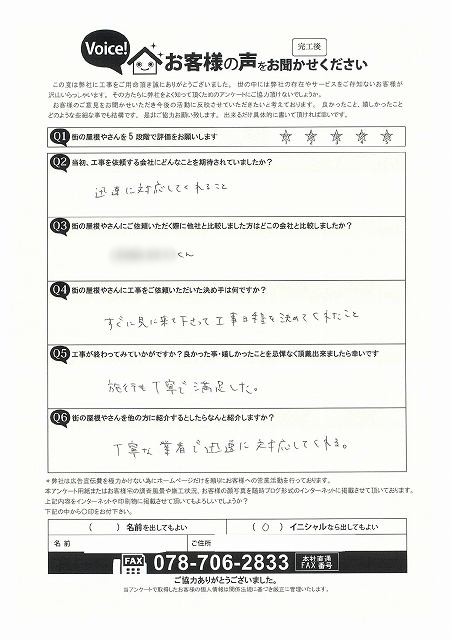 Voice!
お客様の声をお聞かせください
完工後
この度は弊社に工事をご用命頂き誠にありがとうございました。 世の中には弊社の存在やサービスをご存知ないお客様が
沢山いらっしゃいます。 その方たちに弊社をよく知って頂くためのアンケートにご協力頂けないでしょうか。
お客様のご意見をお聞かせいただき今後の活動に反映させていただきたいと考えております。 良かったこと、嬉しかったこと
どのような些細な事でも結構です。 是非ご協力お願い致します。 出来るだけ具体的に書いて頂ければ幸いです。
Q1 街の屋根やさんを5段階で評価をお願いします
Q2 当初、工事を依頼する会社にどんなことを期待されていましたか?
迅速に対応してくれること
Q3 街の屋根やさんにご依頼いただく際に他社と比較しました方はどこの会社と比較しましたか?
くん
Q4 街の屋根やさんに工事をご依頼いただいた決め手は何ですか?
すぐに見に来て下さって工事日程を決めてくれたこと
Q5 工事が終わってみていかがですか?良かった事・嬉しかったことを忌憚なく頂戴出来ましたら幸いです
施行も丁寧で満足した。
Q6 街の屋根やさんを他の方に紹介するとしたらなんと紹介しますか?
丁寧な業者で迅速に対応してくれる。
*弊社は広告宣伝費を極力かけない為にホームページだけを頼りにお客様への営業活動を行っております。
本アンケート用紙またはお客様宅の調査風景や施工状況、お客様の顔写真を随時ブログ形式のインターネットに掲載させて頂いております。
上記内容をインターネットや印刷物に掲載させて頂いてもよろしいでしょうか?
下記の中から〇印をお付下さい。
( ) 名前を出してもよい
( ○ ) イニシャルなら出してもよい
名 前
ご住所
FAX 078-706-2833 本社直通 FAX番号
ご協力ありがとうございました。
当アンケートで取得したお客様の個人情報は関係法規に基づき厳正に管理いたします。